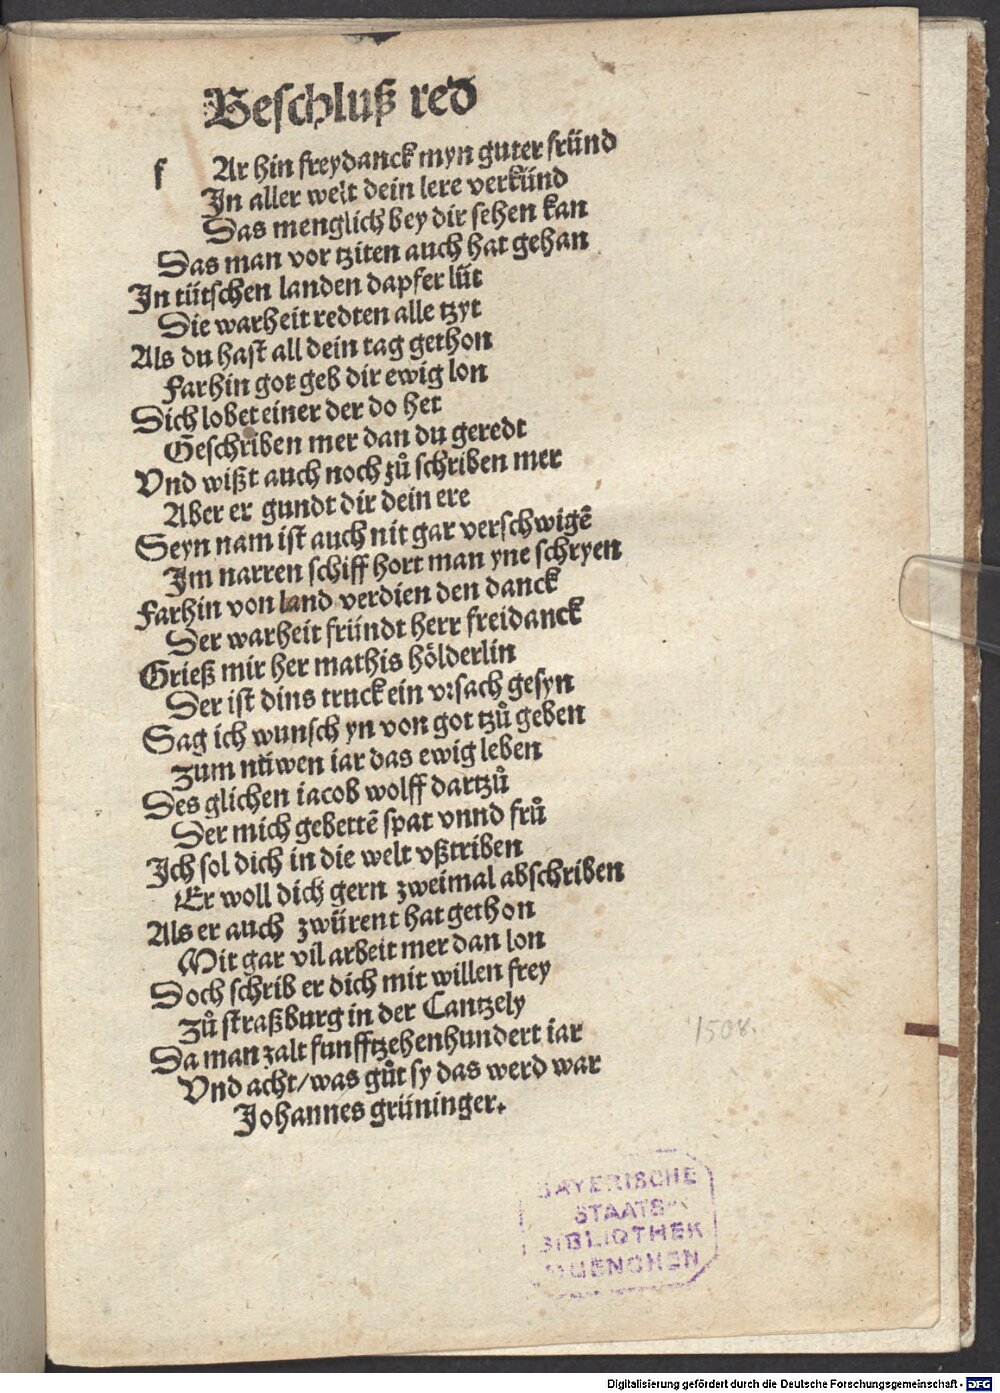 Beschluß red
f Ar hin freydanck myn guter fründ
In aller welt dein lere verkünd
Das menglich bey dir sehen kan
Das man vor tziten auch hat gehan
In tütschen landen dapfer lüt
Die warheit redten alle tzyt
Als du hast all dein tag gethon
Farhin got geb dir ewig lon
Dich lobet einer der do het
Geschriben mer dan du geredt
Vnd wißt auch noch zů schriben mer
Aber er gundt dir dein ere
Seyn nam ist auch nit gar verschwigẽ
Im narren schiff hort man yne schryen
Farhin von land verdien den danck
Der warheit fründt herr freidanck
Grieß mir her mathis hölderlin
Der ist dins truck ein vrsach gesyn
Sag ich wunsch yn von got tzů geben
Zum nüwen iar das ewig leben
Des glichen iacob wolff dartzů
Der mich gebettẽ spat vnnd frů
Ich sol dich in die welt vßtriben
Er woll dich gern zweimal abschriben
Als er auch zwürent hat gethon
Mit gar vil arbeit mer dan lon
Doch schrib er dich mit willen frey
Zů straßburg in der Cantzely
Da man zalt funfftzehenhundert iar
Vnd acht/was gůt sy das werd war
Johannes grüninger.
1508.
BAYERISCHE
STAATS-
BIBLIOTHEK
MUENCHEN
Digitalisierung gefördert durch die Deutsche Forschungsgemeinschaft - DFG